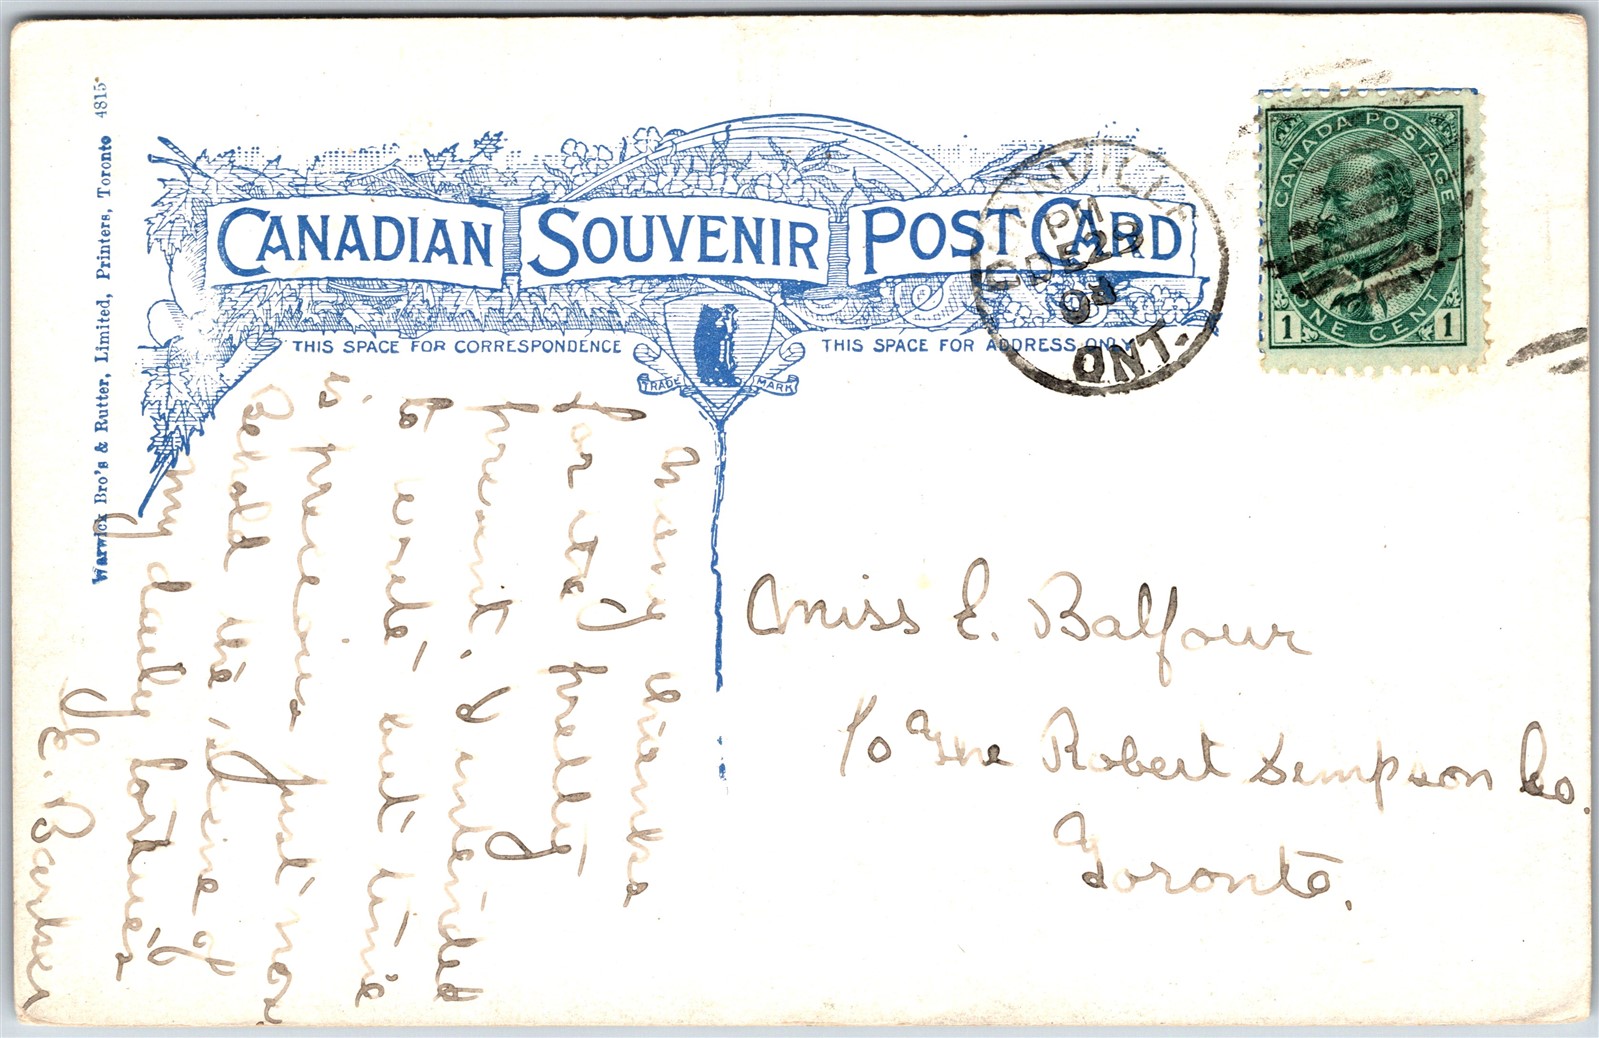 CANADIAN SOUVENIR POST CARD
THIS SPACE FOR CORRESPONDENCE
THIS SPACE FOR ADDRESS ONLY
TRADE MARK
Warwick Bro's & Rutter, Limited, Printers, Toronto 4815
CANADA POSTAGE
1 ONE CENT 1
PM
ONT.
Many thanks
for the pretty
present, I intended
to write, but time
is precious just now
Behold the scene of
my daily
E. Barber
Miss E. Balfour
c/o The Robert Simpson Co.
Toronto.